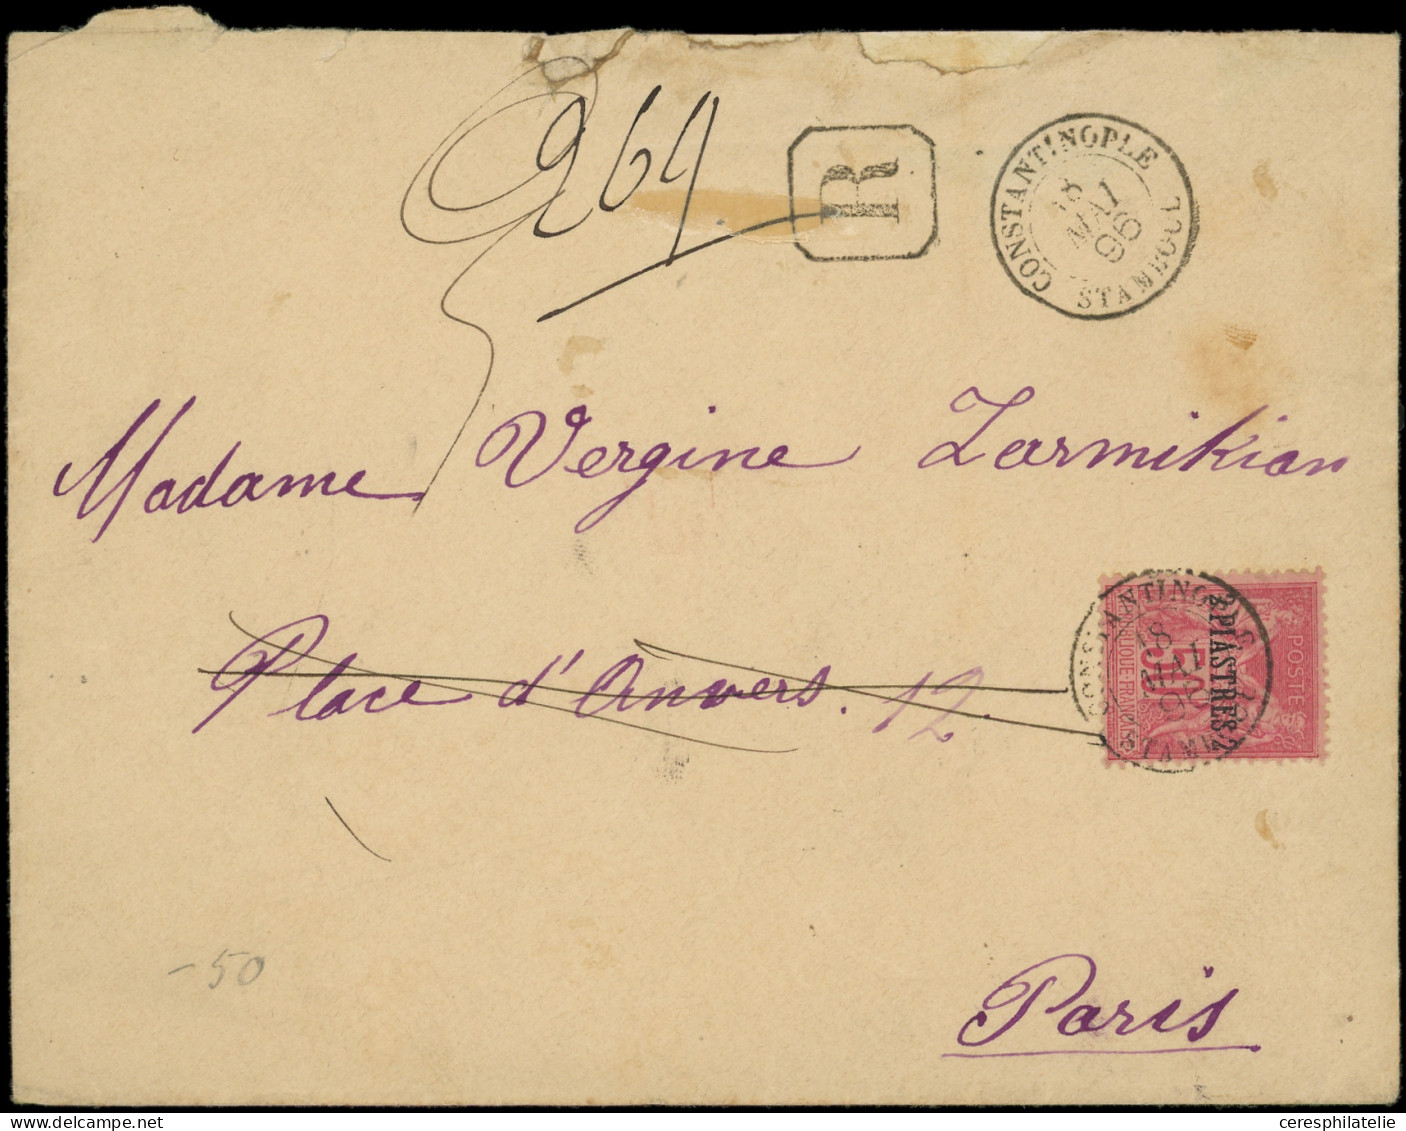 969
R
CONSTANTINOPLE
18
MAI
96
STAMBOUL
Madame Vergine Zarmikian
Place d'Anvers. 12.
CONSTANTINOPLE
18
MAI
STAMBOUL
2 PIASTRES 2
POSTE
50
Paris
-50
ceresphilatelie